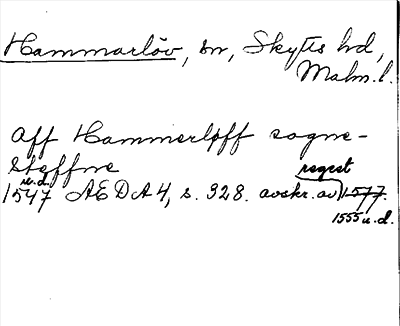 Hammarlöv, sn, Skytts hd,
Malm. l.
Aff Hammerløff sogne-
Steffne
regest
u. d.
1547 AEDA 4, s. 928. avskr. av 1577.
1555 u. d.